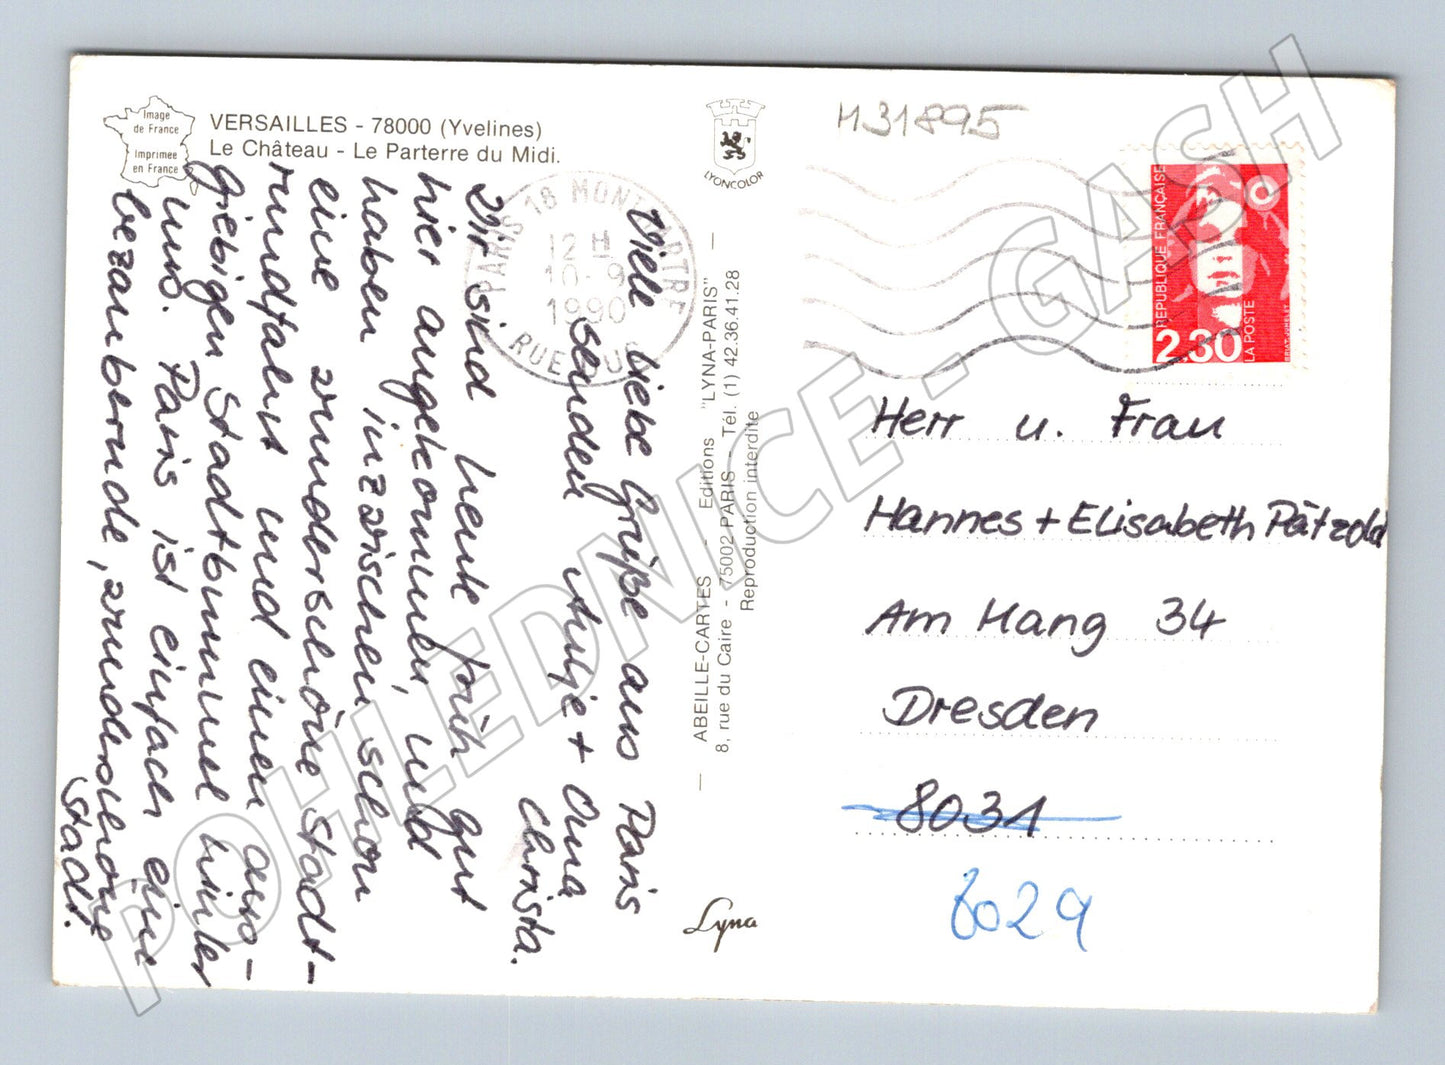 Image
de France
Imprimée
en France
VERSAILLES - 78000 (Yvelines)
Le Château - Le Parterre du Midi.
LYONCOLOR
M31895
PARIS 18 MONTMARTRE
12 H
10-9
1990
RUE DUC
REPUBLIQUE FRANÇAISE
2,30
LA POSTE
Viele liebe Grüße aus Paris
senden Antje + Oma
Christa.
Wir sind heute früh gut
hier angekommen, und
haben inzwischen schon
eine wunderschöne Stadt-
rundfahrt und einen aus-
giebigen Stadtbummel hinter
uns. Paris ist einfach eine
bezaubernde, wunderschöne
Stadt.
ABEILLE-CARTES - Editions "LYNA-PARIS"
8, rue du Caire - 75002 PARIS - Tél. (1) 42.36.41.28
Reproduction interdite
Lyna
Herr u. Frau
Hannes + Elisabeth Pätzold
Am Hang 34
Dresden
8031
8029
POHLEDNICE - GASH